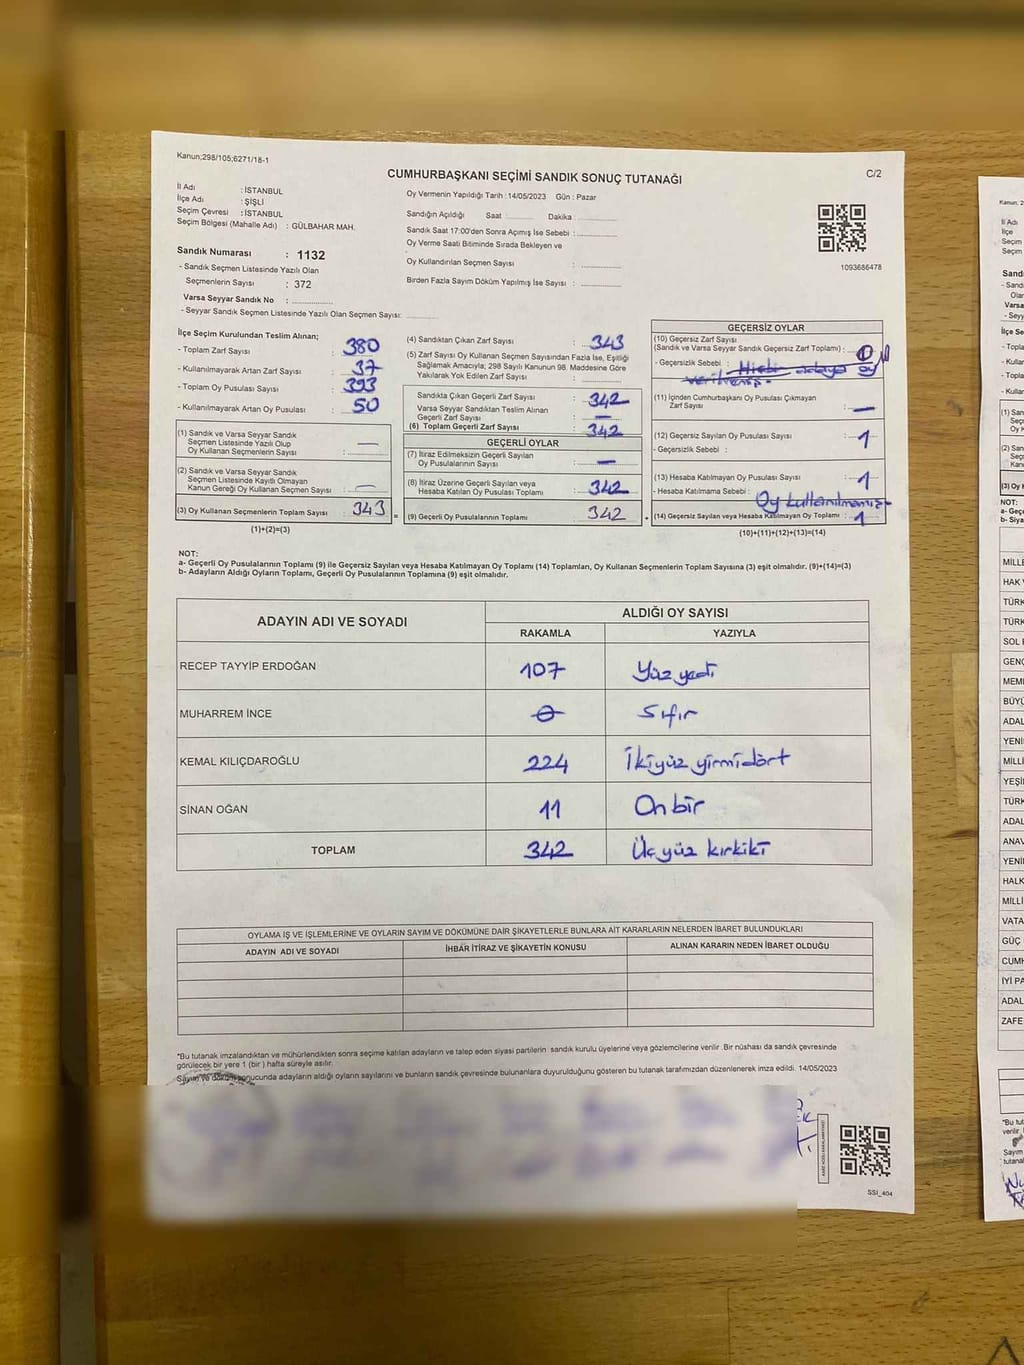 Kanun;298/105;6271/18-1
CUMHURBAŞKANI SEÇİMİ SANDIK SONUÇ TUTANAĞI
C/2
İl Adı : İSTANBUL
İlçe Adı : ŞİŞLİ
Seçim Çevresi : İSTANBUL
Seçim Bölgesi (Mahalle Adı) : GÜLBAHAR MAH.
Sandık Numarası : 1132
- Sandık Seçmen Listesinde Yazılı Olan
Seçmenlerin Sayısı : 372
Varsa Seyyar Sandık No :
- Seyyar Sandık Seçmen Listesinde Yazılı Olan Seçmen Sayısı:
Oy Vermenin Yapıldığı Tarih : 14/05/2023 Gün : Pazar
Sandığın Açıldığı Saat Dakika :
Sandık Saat 17:00'den Sonra Açımış İse Sebebi :
Oy Verme Saati Bitiminde Sırada Bekleyen ve
Oy Kullandırılan Seçmen Sayısı :
Birden Fazla Sayım Döküm Yapılmış İse Sayısı :
1093686478
İlçe Seçim Kurulundan Teslim Alınan;
- Toplam Zarf Sayısı : 380
- Kullanılmayarak Artan Zarf Sayısı : 37
- Toplam Oy Pusulası Sayısı : 393
- Kullanılmayarak Artan Oy Pusulası : 50
(1) Sandık ve Varsa Seyyar Sandık
Seçmen Listesinde Yazılı Olup
Oy Kullanan Seçmenlerin Sayısı : —
(2) Sandık ve Varsa Seyyar Sandık
Seçmen Listesinde Kayıtlı Olmayan
Kanun Gereği Oy Kullanan Seçmen Sayısı : —
(3) Oy Kullanan Seçmenlerin Toplam Sayısı : 343
(1)+(2)=(3)
=
(4) Sandıktan Çıkan Zarf Sayısı : 343
(5) Zarf Sayısı Oy Kullanan Seçmen Sayısından Fazla İse, Eşitliği
Sağlamak Amacıyla; 298 Sayılı Kanunun 98. Maddesine Göre
Yakılarak Yok Edilen Zarf Sayısı :
Sandıkta Çıkan Geçerli Zarf Sayısı : 342
Varsa Seyyar Sandıktan Teslim Alınan
Geçerli Zarf Sayısı : —
(6) Toplam Geçerli Zarf Sayısı : 342
GEÇERLİ OYLAR
(7) İtiraz Edilmeksizin Geçerli Sayılan
Oy Pusulalarının Sayısı : —
(8) İtiraz Üzerine Geçerli Sayılan veya
Hesaba Katılan Oy Pusulası Toplamı : 342
(9) Geçerli Oy Pusulalarının Toplamı : 342
GEÇERSİZ OYLAR
(10) Geçersiz Zarf Sayısı
(Sandık ve Varsa Seyyar Sandık Geçersiz Zarf Toplamı) :
- Geçersizlik Sebebi : Hiçbir adaya oy
verilmemiş.
(11) İçinden Cumhurbaşkanı Oy Pusulası Çıkmayan
Zarf Sayısı : —
(12) Geçersiz Sayılan Oy Pusulası Sayısı : 1
- Geçersizlik Sebebi :
(13) Hesaba Katılmayan Oy Pusulası Sayısı : 1
- Hesaba Katılmama Sebebi : Oy kullanılmamış
(14) Geçersiz Sayılan veya Hesaba Katılmayan Oy Toplamı : 1
(10)+(11)+(12)+(13)=(14)
NOT:
a- Geçerli Oy Pusulalarının Toplamı (9) ile Geçersiz Sayılan veya Hesaba Katılmayan Oy Toplamı (14) Toplamları, Oy Kullanan Seçmenlerin Toplam Sayısına (3) eşit olmalıdır. (9)+(14)=(3)
b- Adayların Aldığı Oyların Toplamı, Geçerli Oy Pusulalarının Toplamına (9) eşit olmalıdır.
ADAYIN ADI VE SOYADI
ALDIĞI OY SAYISI
RAKAMLA YAZIYLA
RECEP TAYYİP ERDOĞAN 107 Yüz yedi
MUHARREM İNCE 0 Sıfır
KEMAL KILIÇDAROĞLU 224 İkiyüz yirmidört
SİNAN OĞAN 11 On bir
TOPLAM 342 Üçyüz kırkiki
OYLAMA İŞ VE İŞLEMLERİNE VE OYLARIN SAYIM VE DÖKÜMÜNE DAİR ŞİKAYETLERLE BUNLARA AİT KARARLARIN NELERDEN İBARET BULUNDUKLARI
ADAYIN ADI VE SOYADI İHBAR İTİRAZ VE ŞİKAYETİN KONUSU ALINAN KARARIN NEDEN İBARET OLDUĞU
*Bu tutanak imzalandıktan ve mühürlendikten sonra seçime katılan adayların ve talep eden siyasi partilerin sandık kurulu üyelerine veya gözlemcilerine verilir .Bir nüshası da sandık çevresinde
görülecek bir yere 1 (bir ) hafta süreyle asılır.
Sayım ve döküm sonucunda adayların aldığı oyların sayılarını ve bunların sandık çevresinde bulunanlara duyurulduğunu gösteren bu tutanak tarafımızdan düzenlenerek imza edildi. 14/05/2023
SSİ_404
Kanun; 2
İl Adı
İlçe
Seçim
Seçim
Sandı
MİLLE
HAK
TÜRK
TÜRK
SOL
GENÇ
MEM
BÜYÜ
ADAL
YENİ
MİLLİ
YEŞİ
TÜRK
ADAL
ANAV
YENİ
HALK
MİLLİ
VATA
GÜÇ
CUMH
İYİ PA
ADAL
ZAFE